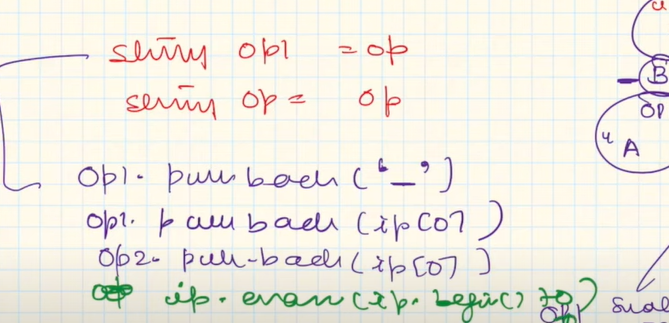 string op1 = op
string op = op
op1. push back ('_')
op1. push back (ip[0])
op2. push-back (ip[0])
ip. erase (ip. begin() +0)
B
op
A